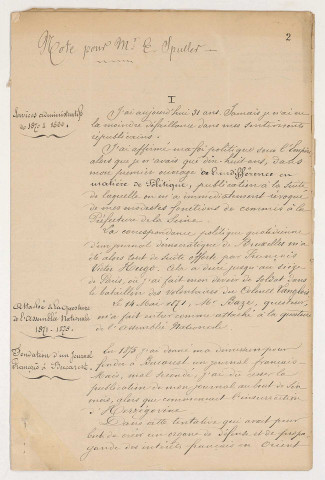 2
Note pour Mr E. Spuller
I
Services administratifs
de 1870 à 1880.
J'ai aujourd'hui 31 ans. Jamais je n'ai eu
la moindre défaillance dans mes sentiments
républicains.
J'ai affirmé ma foi politique sous l'Empire
alors que je n'avais que dix-huit ans, dans
mon premier ouvrage de l'indifférence en
matière de Politique, publication à la suite
de laquelle on m'a immédiatement révoqué
de mes modestes fonctions de commis à la
Préfecture de la Seine.
La correspondance politique quotidienne
d'un journal démocratique de Bruxelles m'a
été alors tout de suite offerte par François
Victor Hugo. Cela a duré jusqu'au siège
de Paris, où j'ai fait mon devoir de soldat dans
le bataillon des volontaires du Colonel Langlois
Attaché à la questure
de l'Assemblée Nationale
1871 - 1875.
Le 14 Mai 1871, Mr Baze, questeur,
m'a fait entrer comme attaché à la questure
de l'Assemblée Nationale.
Fondation d'un journal
Français à Bucarest
En 1875 j'ai donné ma démission pour
fonder à Bucarest un journal français.
Mais, mal secondé, j'ai dû cesser la
publication de mon journal au bout de six
mois, alors que commençait l'insurrection
d'Herzégovine.
Dans cette tentative qui avait pour
but de créer un organe de défense et de propa-
gande des intérêts français en Orient